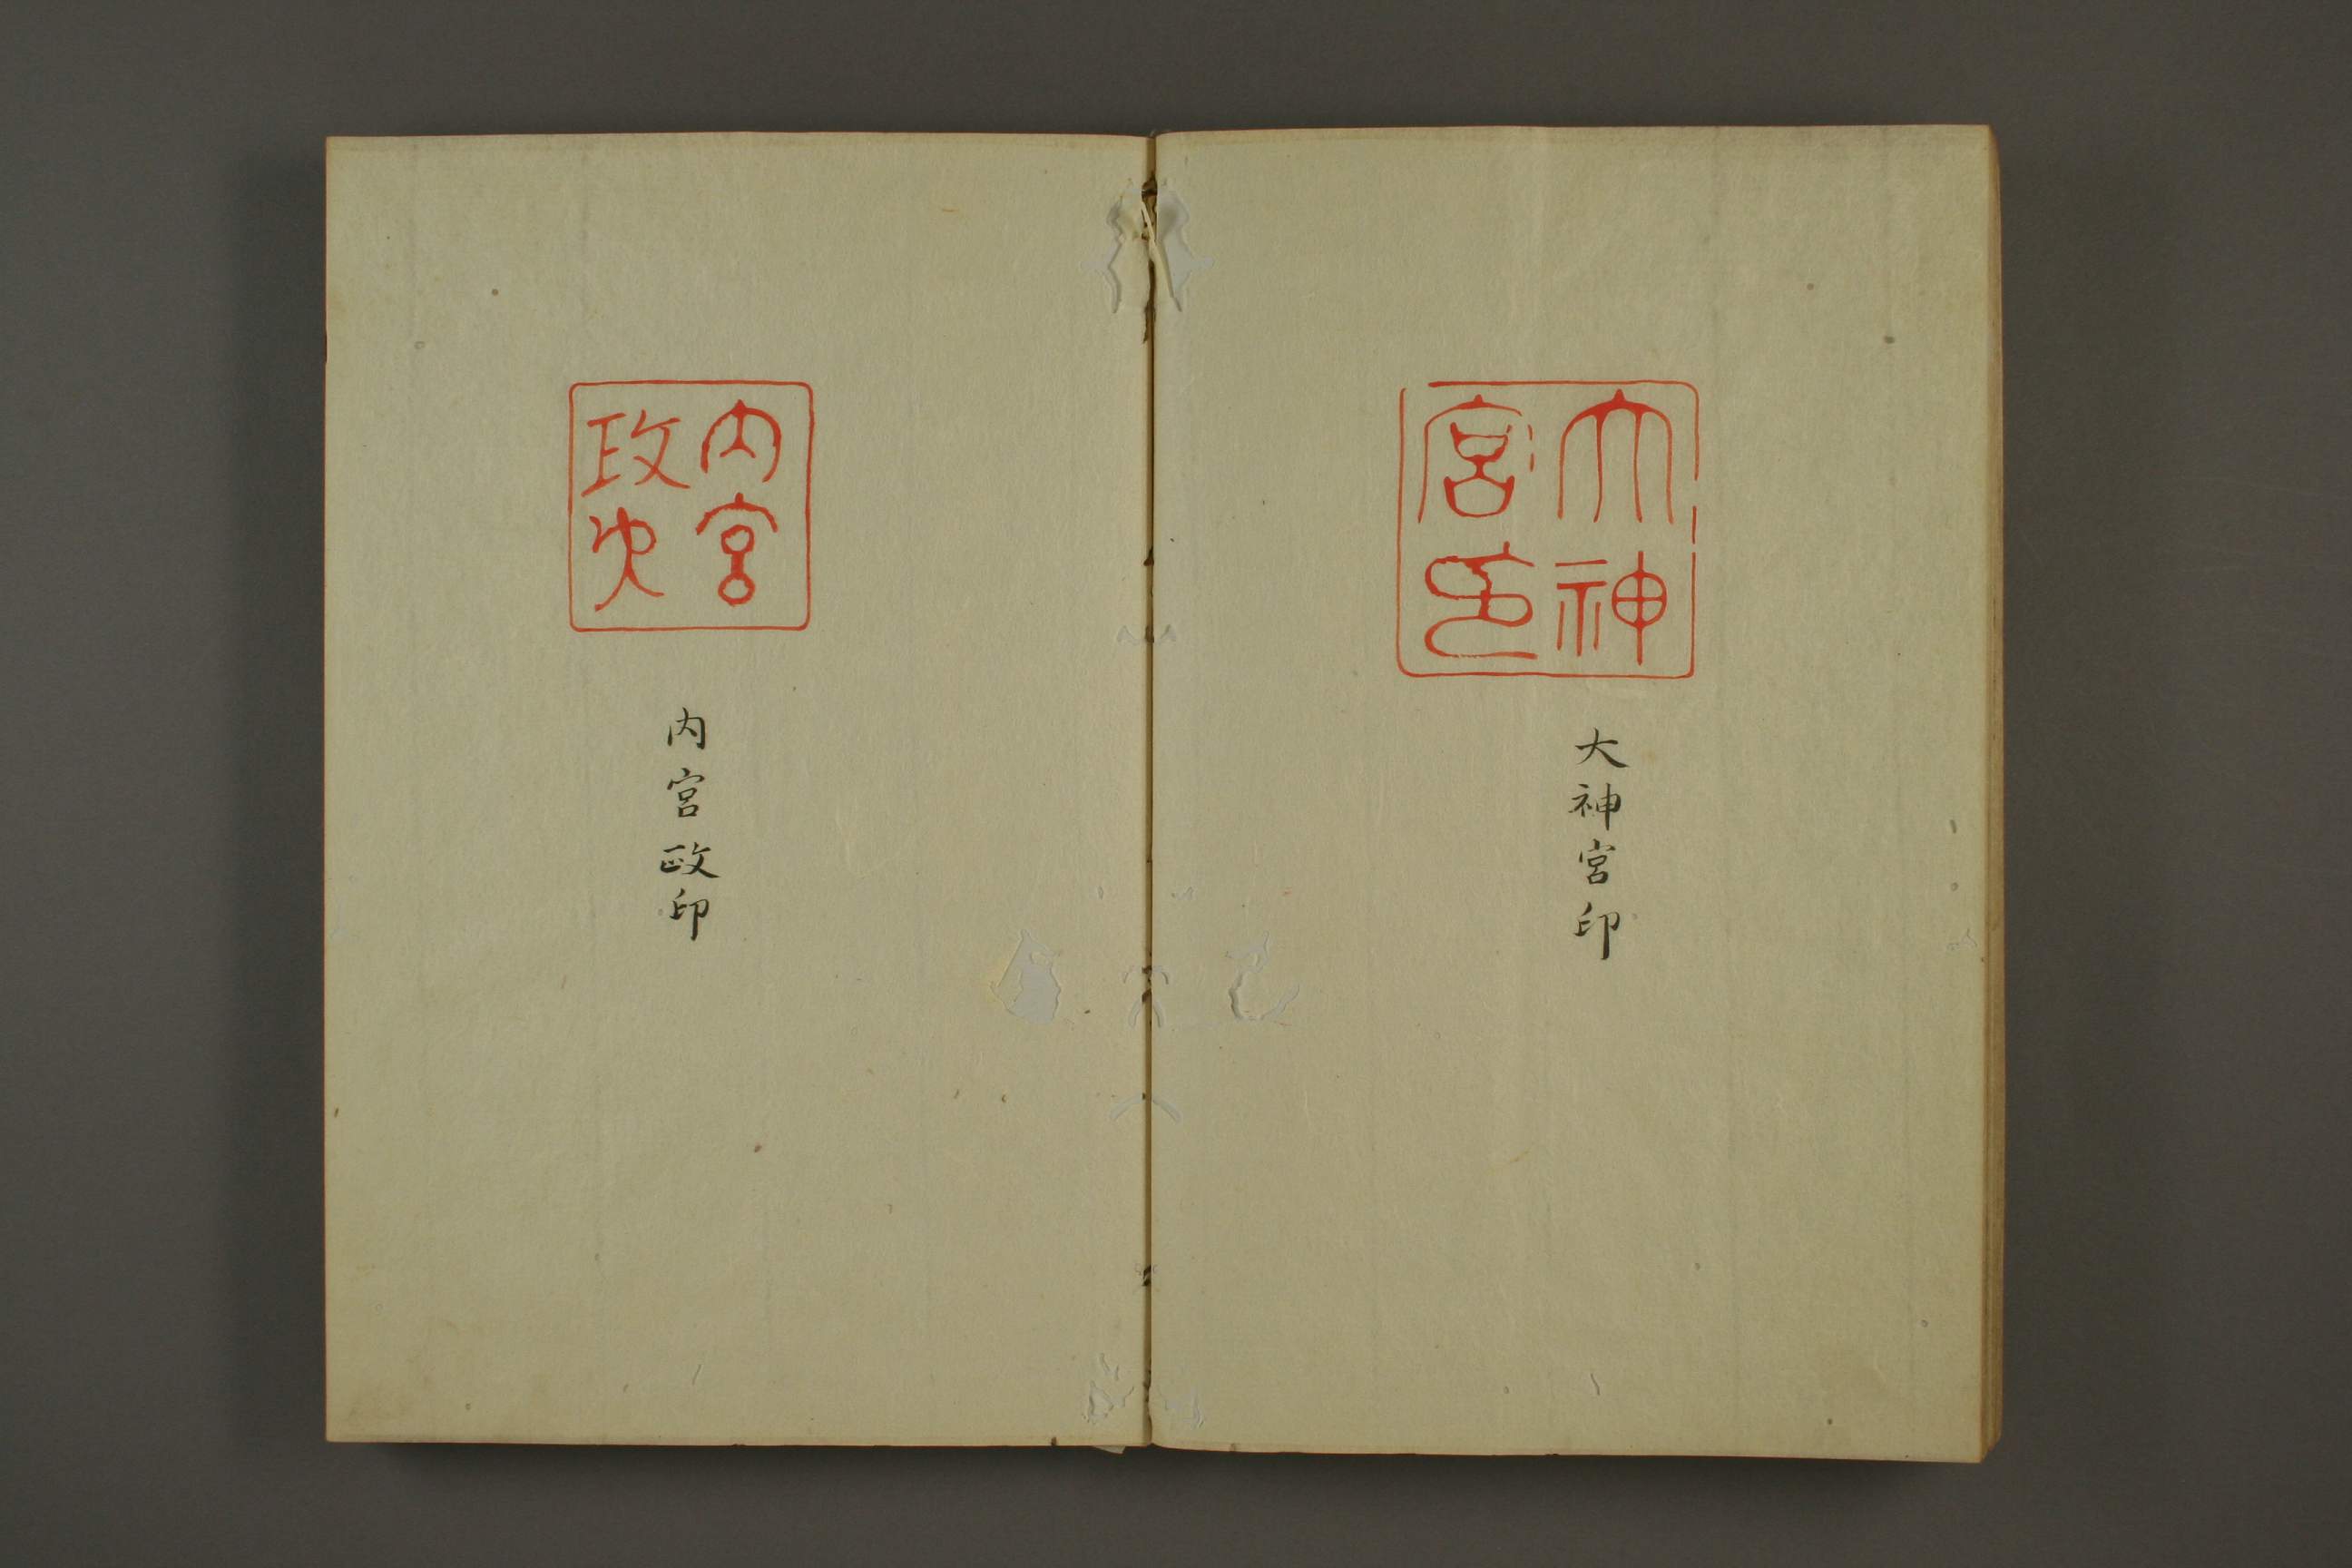 大神
宮印
大神宮印
内宮
政印
内宮政印